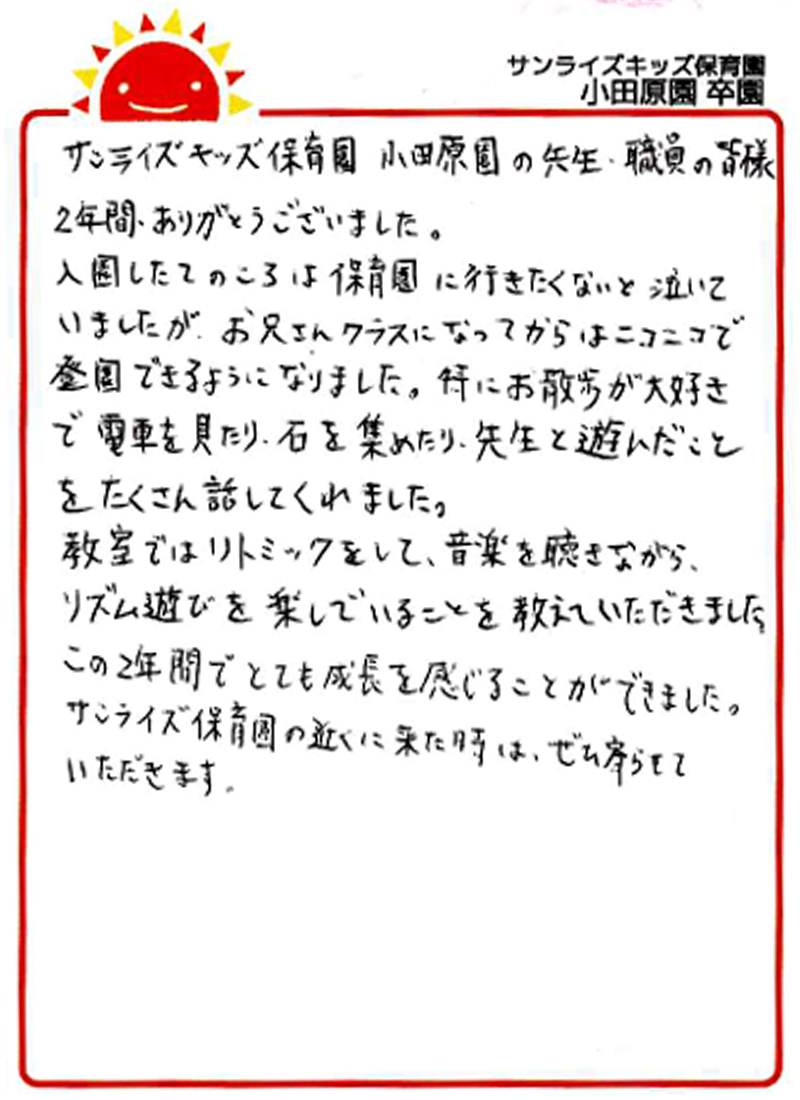 サンライズキッズ保育園
小田原園 卒園
サンライズキッズ保育園 小田原園の先生、職員の皆様
2年間、ありがとうございました。
入園したてのころは保育園に行きたくないと泣いて
いましたが、お兄さんクラスになってからはニコニコで
登園できるようになりました。特にお散歩が大好き
で電車を見たり、石を集めたり、先生と遊んだこと
をたくさん話してくれました。
教室ではリトミックをして、音楽を聴きながら、
リズム遊びを楽しでいることを教えていただきました。
この2年間でとても成長を感じることができました。
サンライズ保育園の近くに来た時は、ぜひ寄らせて
いただきます。